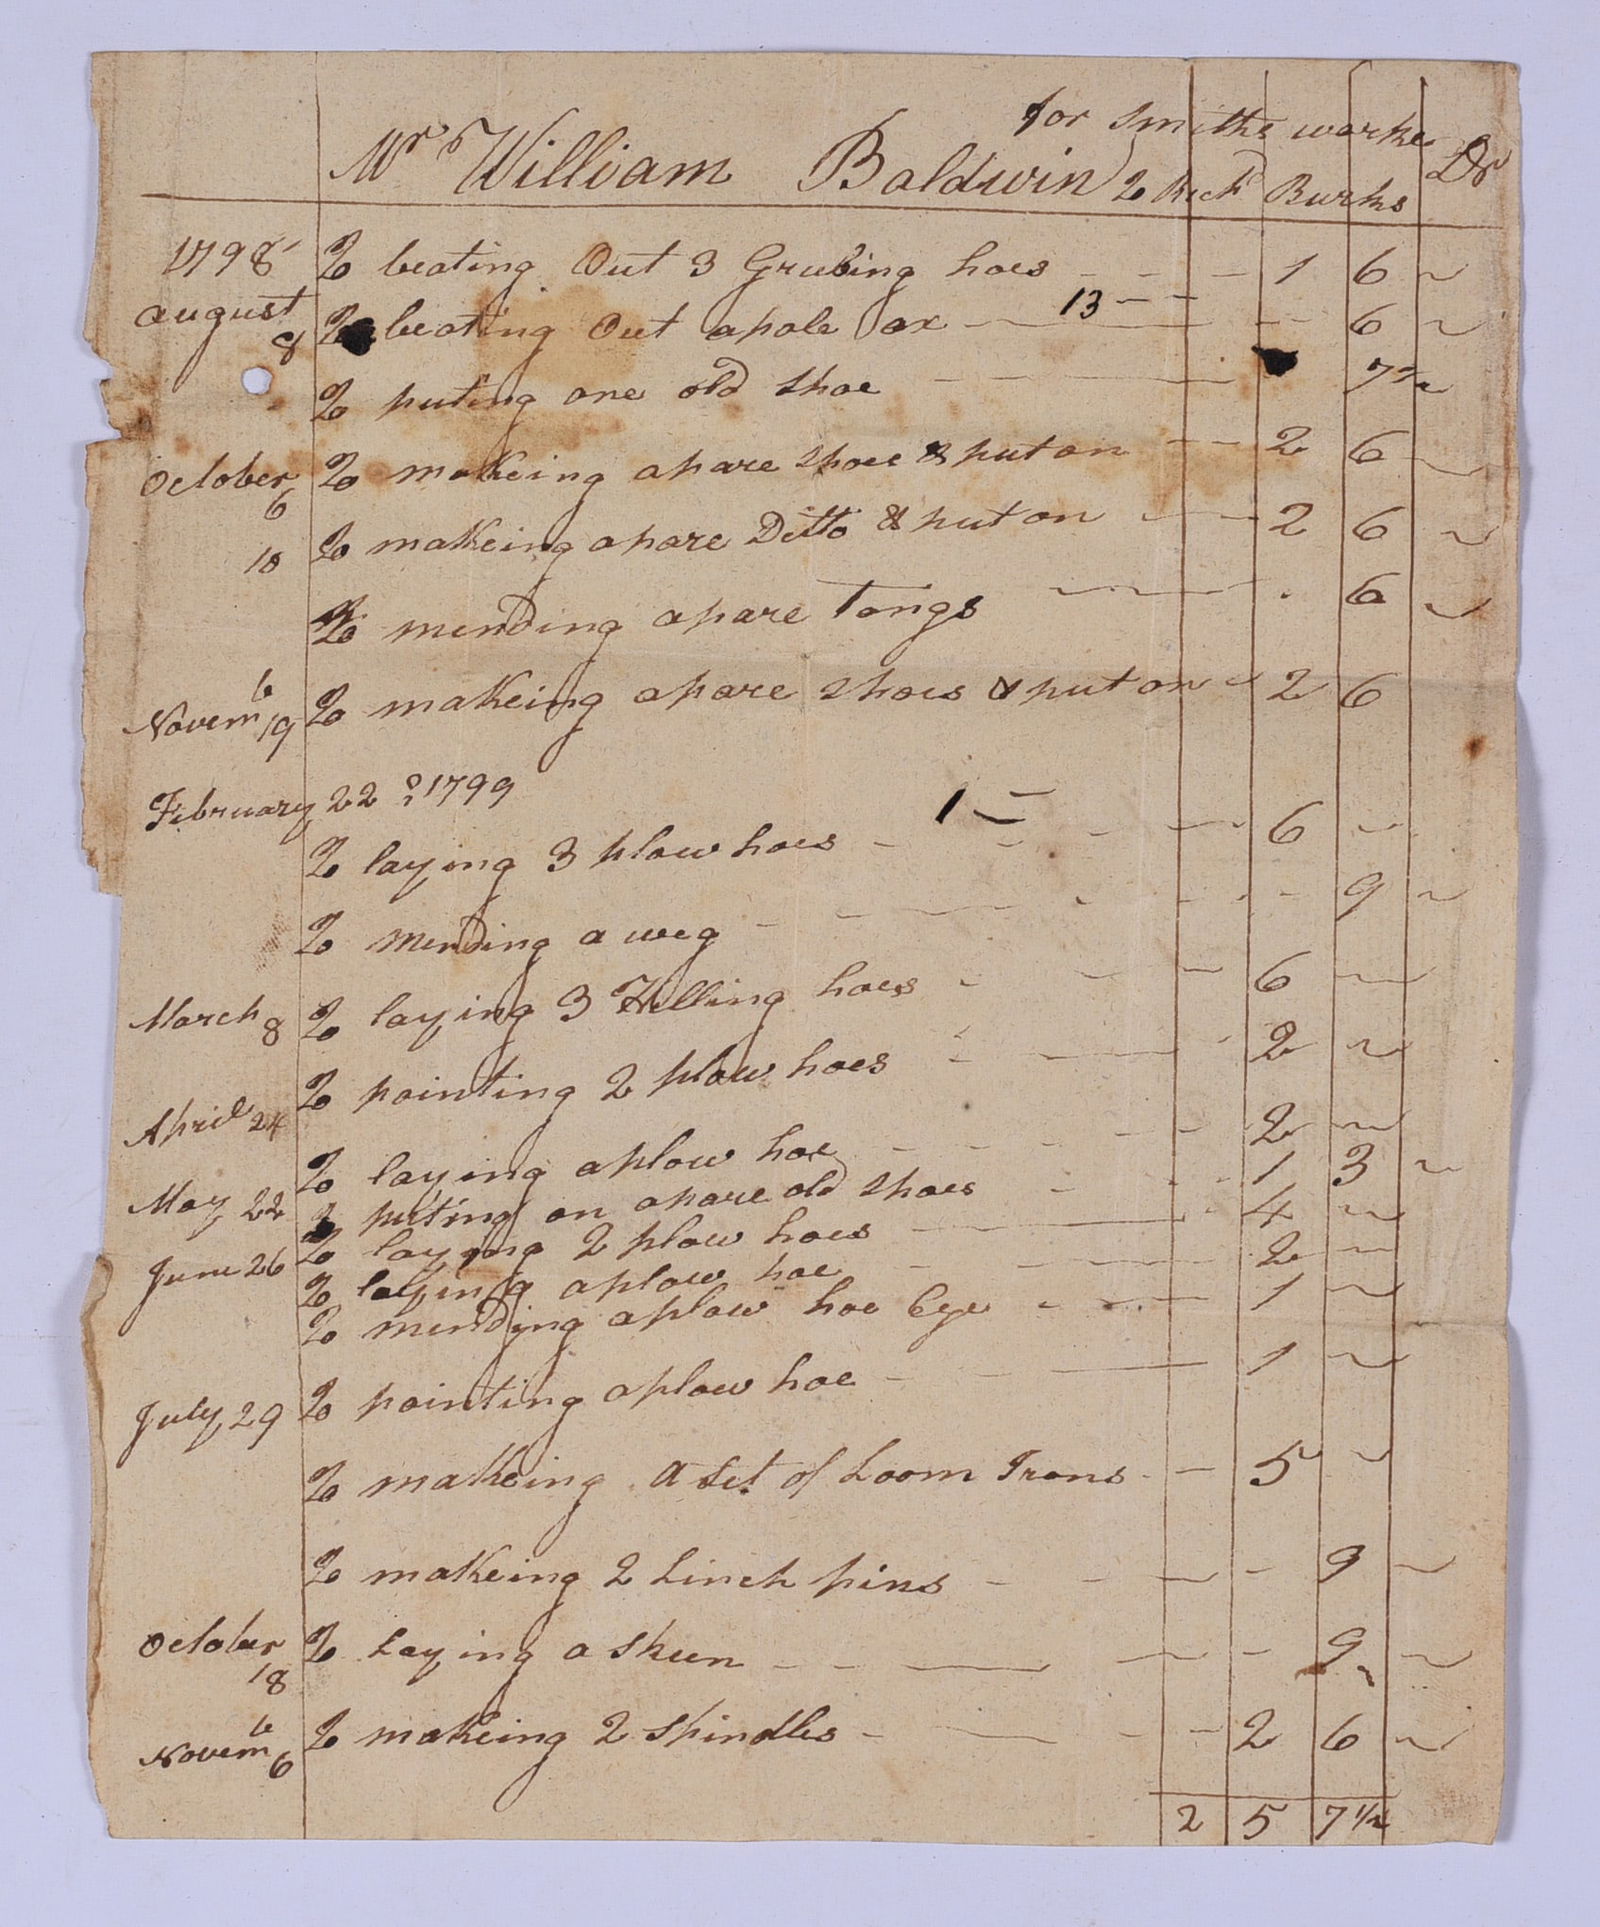 for smiths worke
Mr William Baldwin To Richd Burks Dr
1798 To beating Out 3 Grubing hoes 1 6
august 8 To beating Out a pole ax 13 6
To puting one old shoe 7 1/2
October 6 To makeing a pare shoes & put on 2 6
10 To makeing a pare Ditto & put on 2 6
To mending a pare Tongs 6
Novemb 19 To makeing a pare shoes & put on 2 6
February 22 1799
1
To laying 3 plow hoes 6
To mending a weg 9
March 8 To laying 3 Hilling hoes 6
To pointing 2 plow hoes 2
April 24
To laying a plow hoe 2
May 22 To puting on a pare old shoes 1 3
To laying 2 plow hoes 4
June 26 To laying a plow hoe 2
To mending a plow hoe Eye 1
July 29 To pointing a plow hoe 1
To makeing A Set of Loom Irons 5
To makeing 2 Linch pins 9
October 18 To Laying a Skeen 9
Novemb 6 To makeing 2 Spindles 2 6
2 5 7 1/2